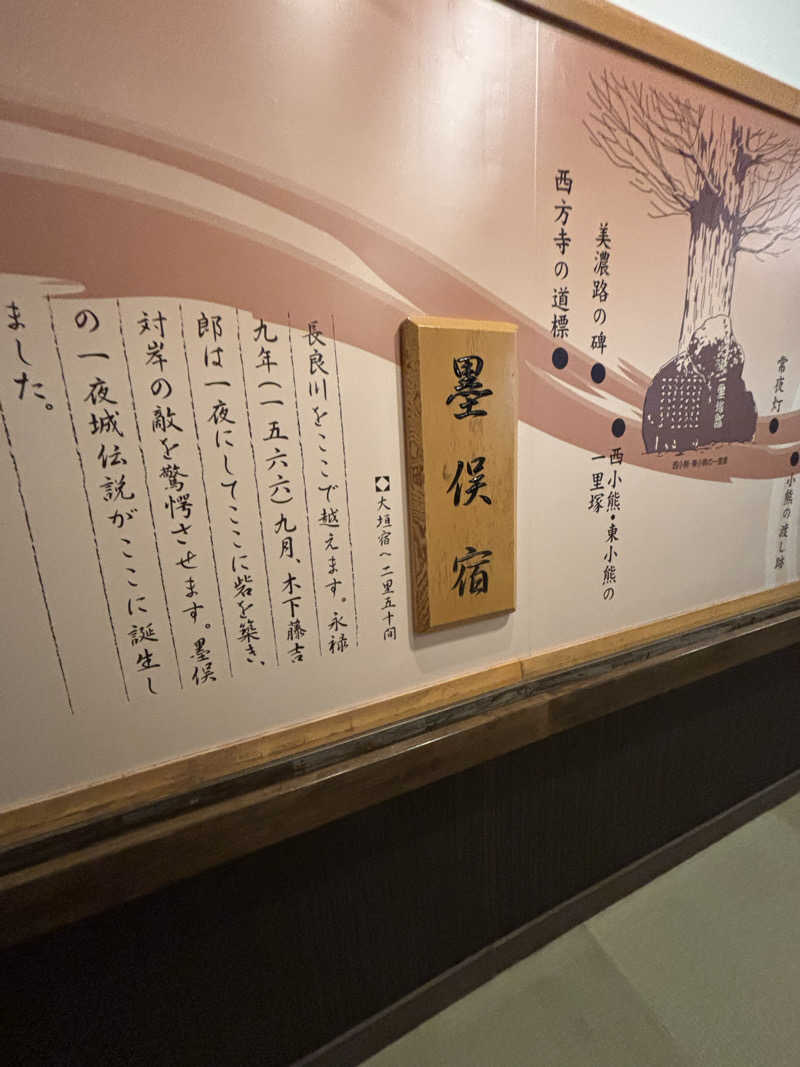 常夜灯
小熊の渡し跡
美濃路の碑
西小熊・東小熊の
一里塚
西小熊・東小熊の一里塚
西方寺の道標
墨俣宿
大垣宿へ二里五十間
長良川をここで越えます。永禄
九年(一五六六)九月、木下藤吉
郎は一夜にしてここに砦を築き、
対岸の敵を驚愕させます。墨俣
の一夜城伝説がここに誕生し
ました。